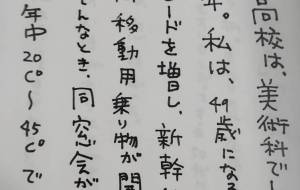 高校は、美術科でし
年。私は、49歳になる
ードを増し、新幹
移動用乗り物が開
そんなとき、同窓会が
年中20C°〜45C°で